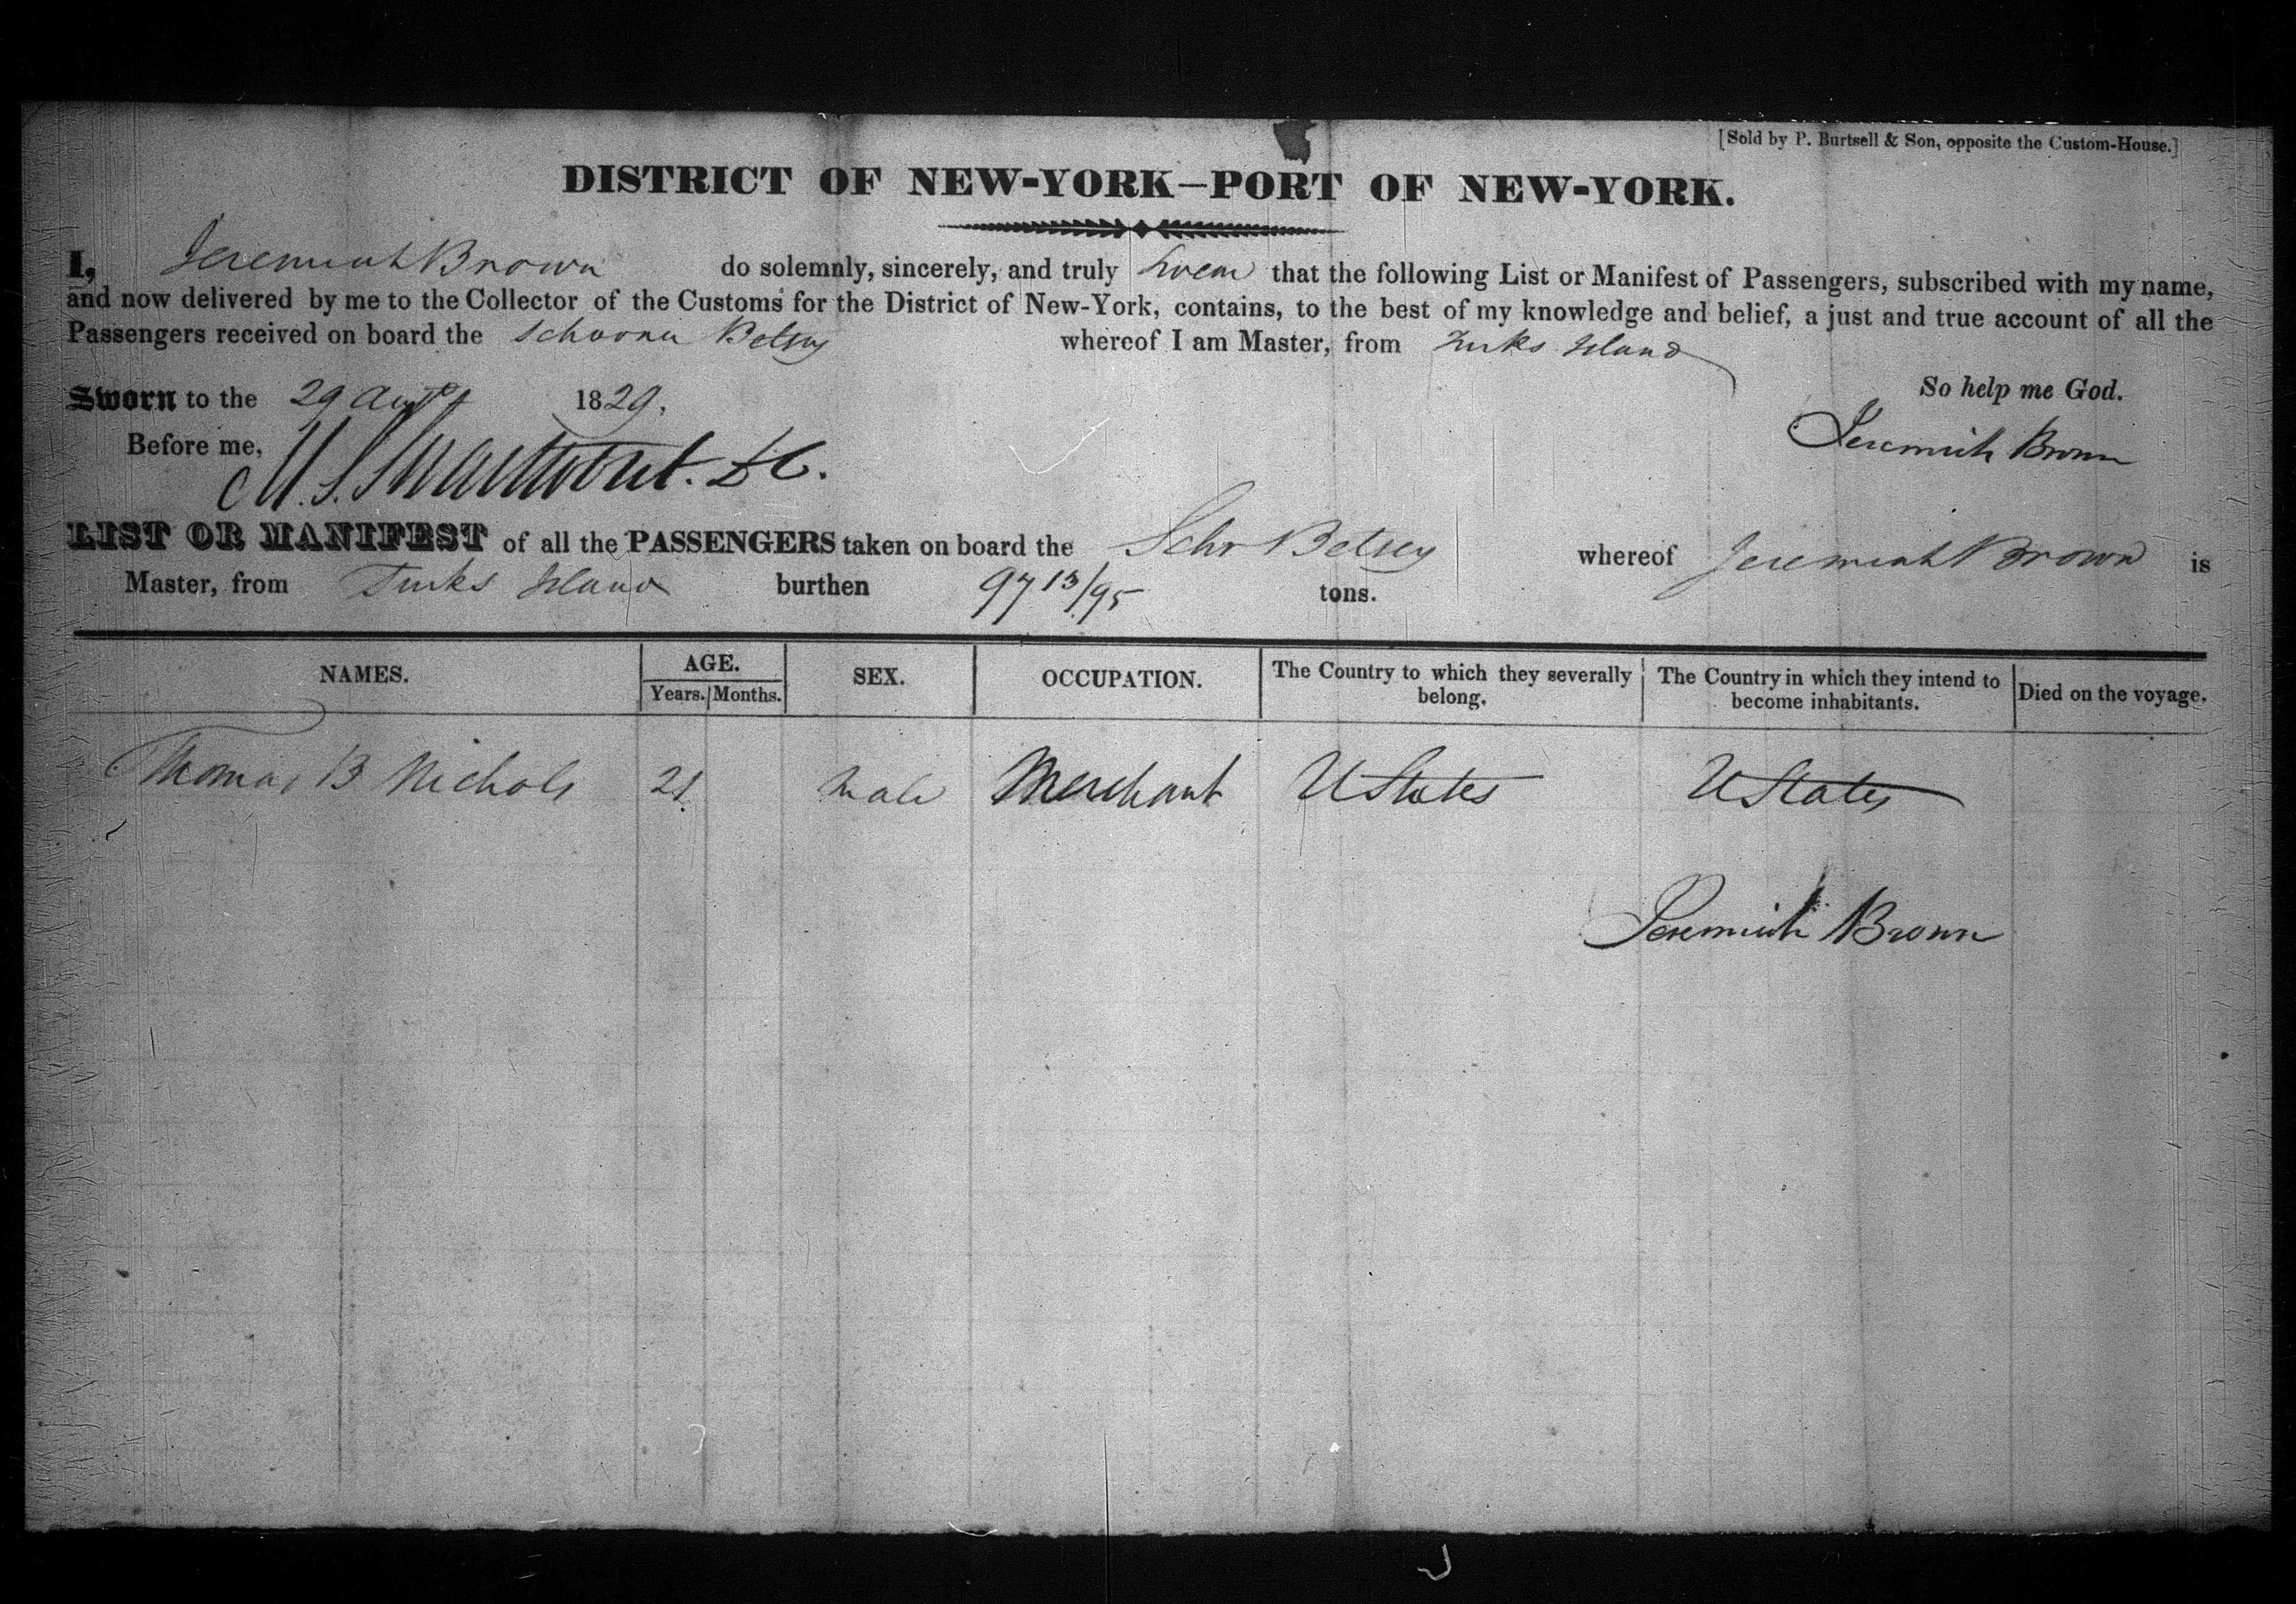 [Sold by P. Burtsell & Son, opposite the Custom-House.]
DISTRICT OF NEW-YORK—PORT OF NEW-YORK.
I, Jeremiah Brown do solemnly, sincerely, and truly swear that the following List or Manifest of Passengers, subscribed with my name,
and now delivered by me to the Collector of the Customs for the District of New-York, contains, to the best of my knowledge and belief, a just and true account of all the
Passengers received on board the Schooner Betsey whereof I am Master, from Turks Island
So help me God.
Sworn to the 29 Augt 1829.
Jeremiah Brown
Before me, M. Swartwout. DC.
LIST OR MANIFEST of all the PASSENGERS taken on board the Schr Betsey whereof Jeremiah Brown is
Master, from Turks Island burthen 97 13/95 tons.
NAMES. AGE. Years. Months. SEX. OCCUPATION. The Country to which they severally belong. The Country in which they intend to become inhabitants. Died on the voyage.
Thomas B Nichols 21 Male Merchant UStates UStates
Jeremiah Brown